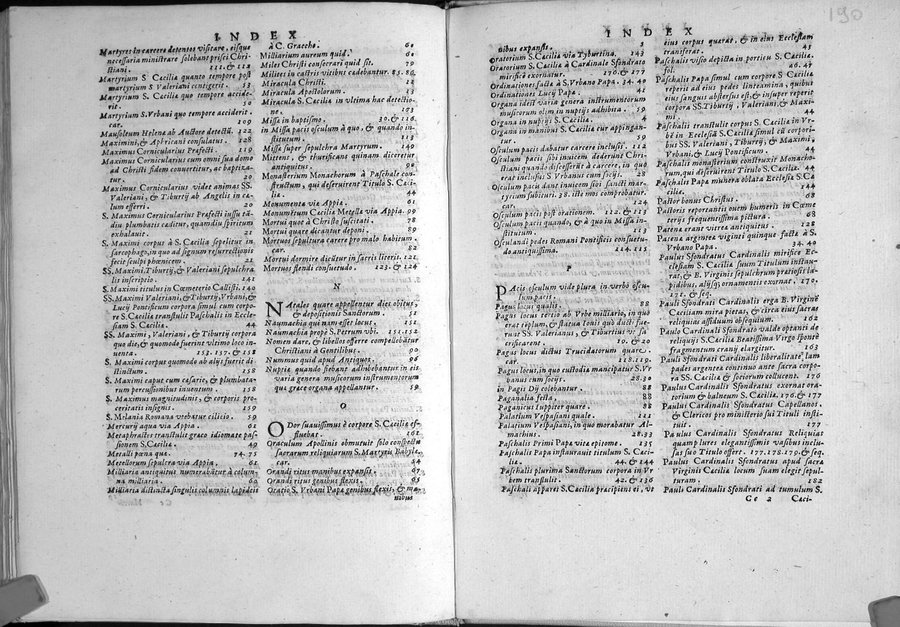 INDEX
Martyres in carcere detentos visitare, eisque
necessaria ministrare solebant prisci Chri-
stiani. 111. & 118
Martyrium S Cæcilia quanto tempore post
martyrium S Valeriani contigerit. 53
Martyrium S. Cæcilia quo tempore accide-
rit. 50
Martyrium S. Vrbani quo tempore acciderit.
car. 109
Mausoleum Helenæ ab Auctore detectũ. 122
Maximini, & Aphricani consulatus. 128
Maximus Cornicularius Præfecti. 119
Maximus Cornicularius cum omni sua domo
ad Christi fidem conuertitur, ac baptiza-
tur. 20
Maximus Cornicularius videt animas SS.
Valeriani, & Tiburtij ab Angelis in cæ-
lum efferri. 20
S. Maximus Cornicularius Præfecti iussu tã-
diu plumbatis cæditur, quamdiu spiritum
exhalauit. 21
S. Maximi corpus à S. Cæcilia sepelitur in
sarcophago, in quo ad signum resurrectionis
fecit sculpi phœnicem. 21
SS, Maximi, Tiburtij, & Valeriani sepulchra
lis inscriptio.
S. Maximi titulus in Cœmeterio Callisti. 140
SS, Maximi Valeriani, & Tiburtij, Vrbani, &
Lucij Pontificum corpora simul cum corpo-
re S. Cæcilia transtulit Paschalis in Eccle-
siam S. Cæciliæ. 44
SS. Maximi, Valeriani, & Tiburtij corpora
quo die, & quomodo fuerint vltimo loco in-
uenta. 153. 157. & 158
S. Maximi corpus quomodo ab alijs fuerit di-
stinctum. 158
S. Maximi caput cum cæsarie, & plumbata-
rum percussionibus inuentum. 158
S. Maximi magnitudinis, & corporis pro-
ceritatis insignis. 159
S. Melania Romana vtebatur cilicio. 59
Mercurij aqua via Appia. 61
Metaphrastes transtulit græco idiomate pas-
sionem S. Cæciliæ. 49
Metalli pœna quæ. 74. 75
Metellorum sepulcra via Appia. 61
Milliaria antiquitus numerabãtur à colum-
na milliaria. 60
Milliaria distincta singulis columnis lapideis
à C. Graccho. 60
Milliarium aureum quid. 60
Miles Christi conserrari quid sit. 79
Milites in castris vitibus cædebantur. 85. 86.
Miracula Christi. 12
Miracula Apostolorum. 13
Miracula S. Cæciliæ in vltima hac detectio-
ne. 193
Missa in baptismo. 30. & 116.
in Missa pacis osculum à quo, & quando in-
stitutum. 113
Missa super sepulchra Martyrum. 140
Mittens, & thurificans quinam diceretur
antiquitus. 98
Monasterium Monachorum à Paschale con-
structum, qui deseruirent Titulo S. Cæci-
liæ. 44
Monumenta via Appia. 61
Monumētum Cæciliæ Metellæ via Appia. 99
Mortui quot à Christo suscitati. 78
Mortui quare dicantur deponi. 89
Mortuos sepultura carere pro malo habitum.
car. 82
Mortui dormire dicũtur in sacris literis. 121.
Mortuos flendi consuetudo. 123. & 124
N
NAtales quare appellentur dies obitus,
& depositionis Sanctorum. 51
Naumachia qui nam esset locus, 151.
Naumachia propè S. Petrum vbi. 151. 152
Nomen dare, & libellos offerre compellebãtur
Christiani à Gentilibus. 90
Nummus quid apud Antiquos. 96
Nuptiæ quando fiebant adhibebantur in eis
varia genera musicorum instrumentorum
quæ græcè organa appellantur. 59
O
ODor suauissimus è corpore S. Cæciliæ ef-
fluebat. 161
Oraculum Apollinis obmutuit solo conspectu
sacrarum reliquiarum S. Martyris Babylæ.
car. 64
Orandi ritus manibus expansis. 67
Orandi ritus genibus flexis. 65
Oratio S. Vrbani Papæ genibus flexis, & ma-
nibus
INDEX
nibus expansis. 5
Oratorium S. Cæciliæ via Tyburtina. 143
Oratorium S. Cæciliæ à Cardinale Sfondrato
mirificè exornatur. 176. & 177
Ordinationes factæ à S. Vrbano Papa. 34. 40
Ordinationes Lucij Papæ. 42
Organa idest varia genera instrumentorum
musicorum olim in nuptijs adhibita. 59
Organa in nuptijs S. Cæciliæ. 4
Organa in manibus S. Cæciliæ cur appingan-
tur. 59
Osculum pacis dabatur carcere inclusis. 112
Osculum pacis sibi inuicem dederunt Chri-
stiani quando discesserũt à carcere, in quo
erat inclusus S Vrbanus cum socijs. 28
Osculum pacis dant inuicem sibi sancti mar-
tyrcs̄ubicuri. 38. iste mos comprobatur.
car. 124
Osculum pacis post orationem. 112. & 113
Osculum pacis quando, & à quo in Missa in-
stitutum. 113
Osculandi pedes Romani Pontificis consuetu-
do antiquissima. 114. 115
P
PAcis osculum vide plura in verbo oscu-
lum pacis.
Pagus locus qualis. 88
Pagus locus tertio ab Vrbe milliario, in quo
erat templum, & statua Iouis quò ducti fue-
runt SS. Valerianus, & Tiburtius vt sa-
crificarent. 10. & 20
Pagus locus dictus Trucidatorum quare.
car. 118. 119.
Pagus locus, in quo custodia mancipatus S. Vr
banus cum socijs. 28. 30
in Pagis Dij colebantur. 88
Paganalia festa. 88
Paganicus Iuppiter quare. 88
Palatium Vespasiani quale. 111
Palatium Vespasiani, in quo morabatur Al-
machius. 28. 33
Paschalis Primi Papæ vitæ epitome. 135
Paschalis Papa instaurauit titulum S. Cæci-
liæ. 44. & 144
Paschalis plurima Sanctorum corpora in Vr
bem transtulit. 42. & 136
Paschali apparet S. Cæcilia præcipiens ei, vt
eius corpus quærat, & in eius Ecclesiam
transferat. 43
Paschalis visio depicta in porticu S. Cæciliæ.
fol. 46. 47
Paschalis Papa simul cum corpore S Cæciliæ
reperit ad eius pedes linteamina, quibus
eius sanguis abstersus est, & insuper reperit
corpora SS. Tiburtij, Valeriani, & Maxi-
mi. 44
Paschalis transtulit corpus S. Cæciliæ in Vr-
bē in Ecclesiã S. Cæciliæ simul cũ corpori-
bus SS. Valeriani, Tiburtij, & Maximi,
Vrbani, & Lucij Pontificum. 44
Paschalis monasterium construxit Monacho-
rum, qui deseruirent Titulo S. Cæciliæ. 44
Paschalis Papæ munera oblata Ecclesiæ S Cæ
ciliæ. 144
Pastor bonus Christus. 67
Pastoris reportantis ouem humeris in Cœme
terijs frequentissima pictura. 68
Patena crant vitrea antiquitus. 128
Patena argentea viginti quinque factæ à S.
Vrbano Papa. 34. 40
Paulus Sfondratus Cardinalis mirificè Ec-
clesiam S. Cæciliæ suum Titulum instau-
rat, & B. Virginis sepulchrum pretiosis la-
pidibus, alijsq; ornamentis exornat. 170.
171. & seq.
Pauli Sfondrati Cardinalis erga B. Virginē
Cæciliam mira pietas, & circa eius sacras
reliquias assiduum obsequium. 162
Paulo Cardinali Sfondrato valde optanti de
reliquijs S. Cæciliæ Beatissima Virgo spontè
fragmentum cranij elargitur. 163
Pauli Sfondrati Cardinalis liberalitate, lam
pades argenteæ continuò ante sacra corpo-
ra SS. Cæciliæ, & sociorum collucent. 176
Paulus Cardinalis Sfondratus exornat ora-
torium & balneum S. Cæciliæ. 176. & 177
Paulus Cardinalis Sfondratus Capellanos,
& Clericos pro ministerio sui Tituli insti-
tuit. 177
Paulus Cardinalis Sfondratus Reliquias
quamplures elegantissimis vasibus inclu-
sas suo Titulo offert. 177. 178. 179. & seq.
Paulus Cardinalis Sfondratus apud sacra
Virginis Cæciliæ locum suam elegit sepul-
turam. 182
Pauli Cardinalis Sfondrati ad tumulum S.
Cc 2 Cæci-
190